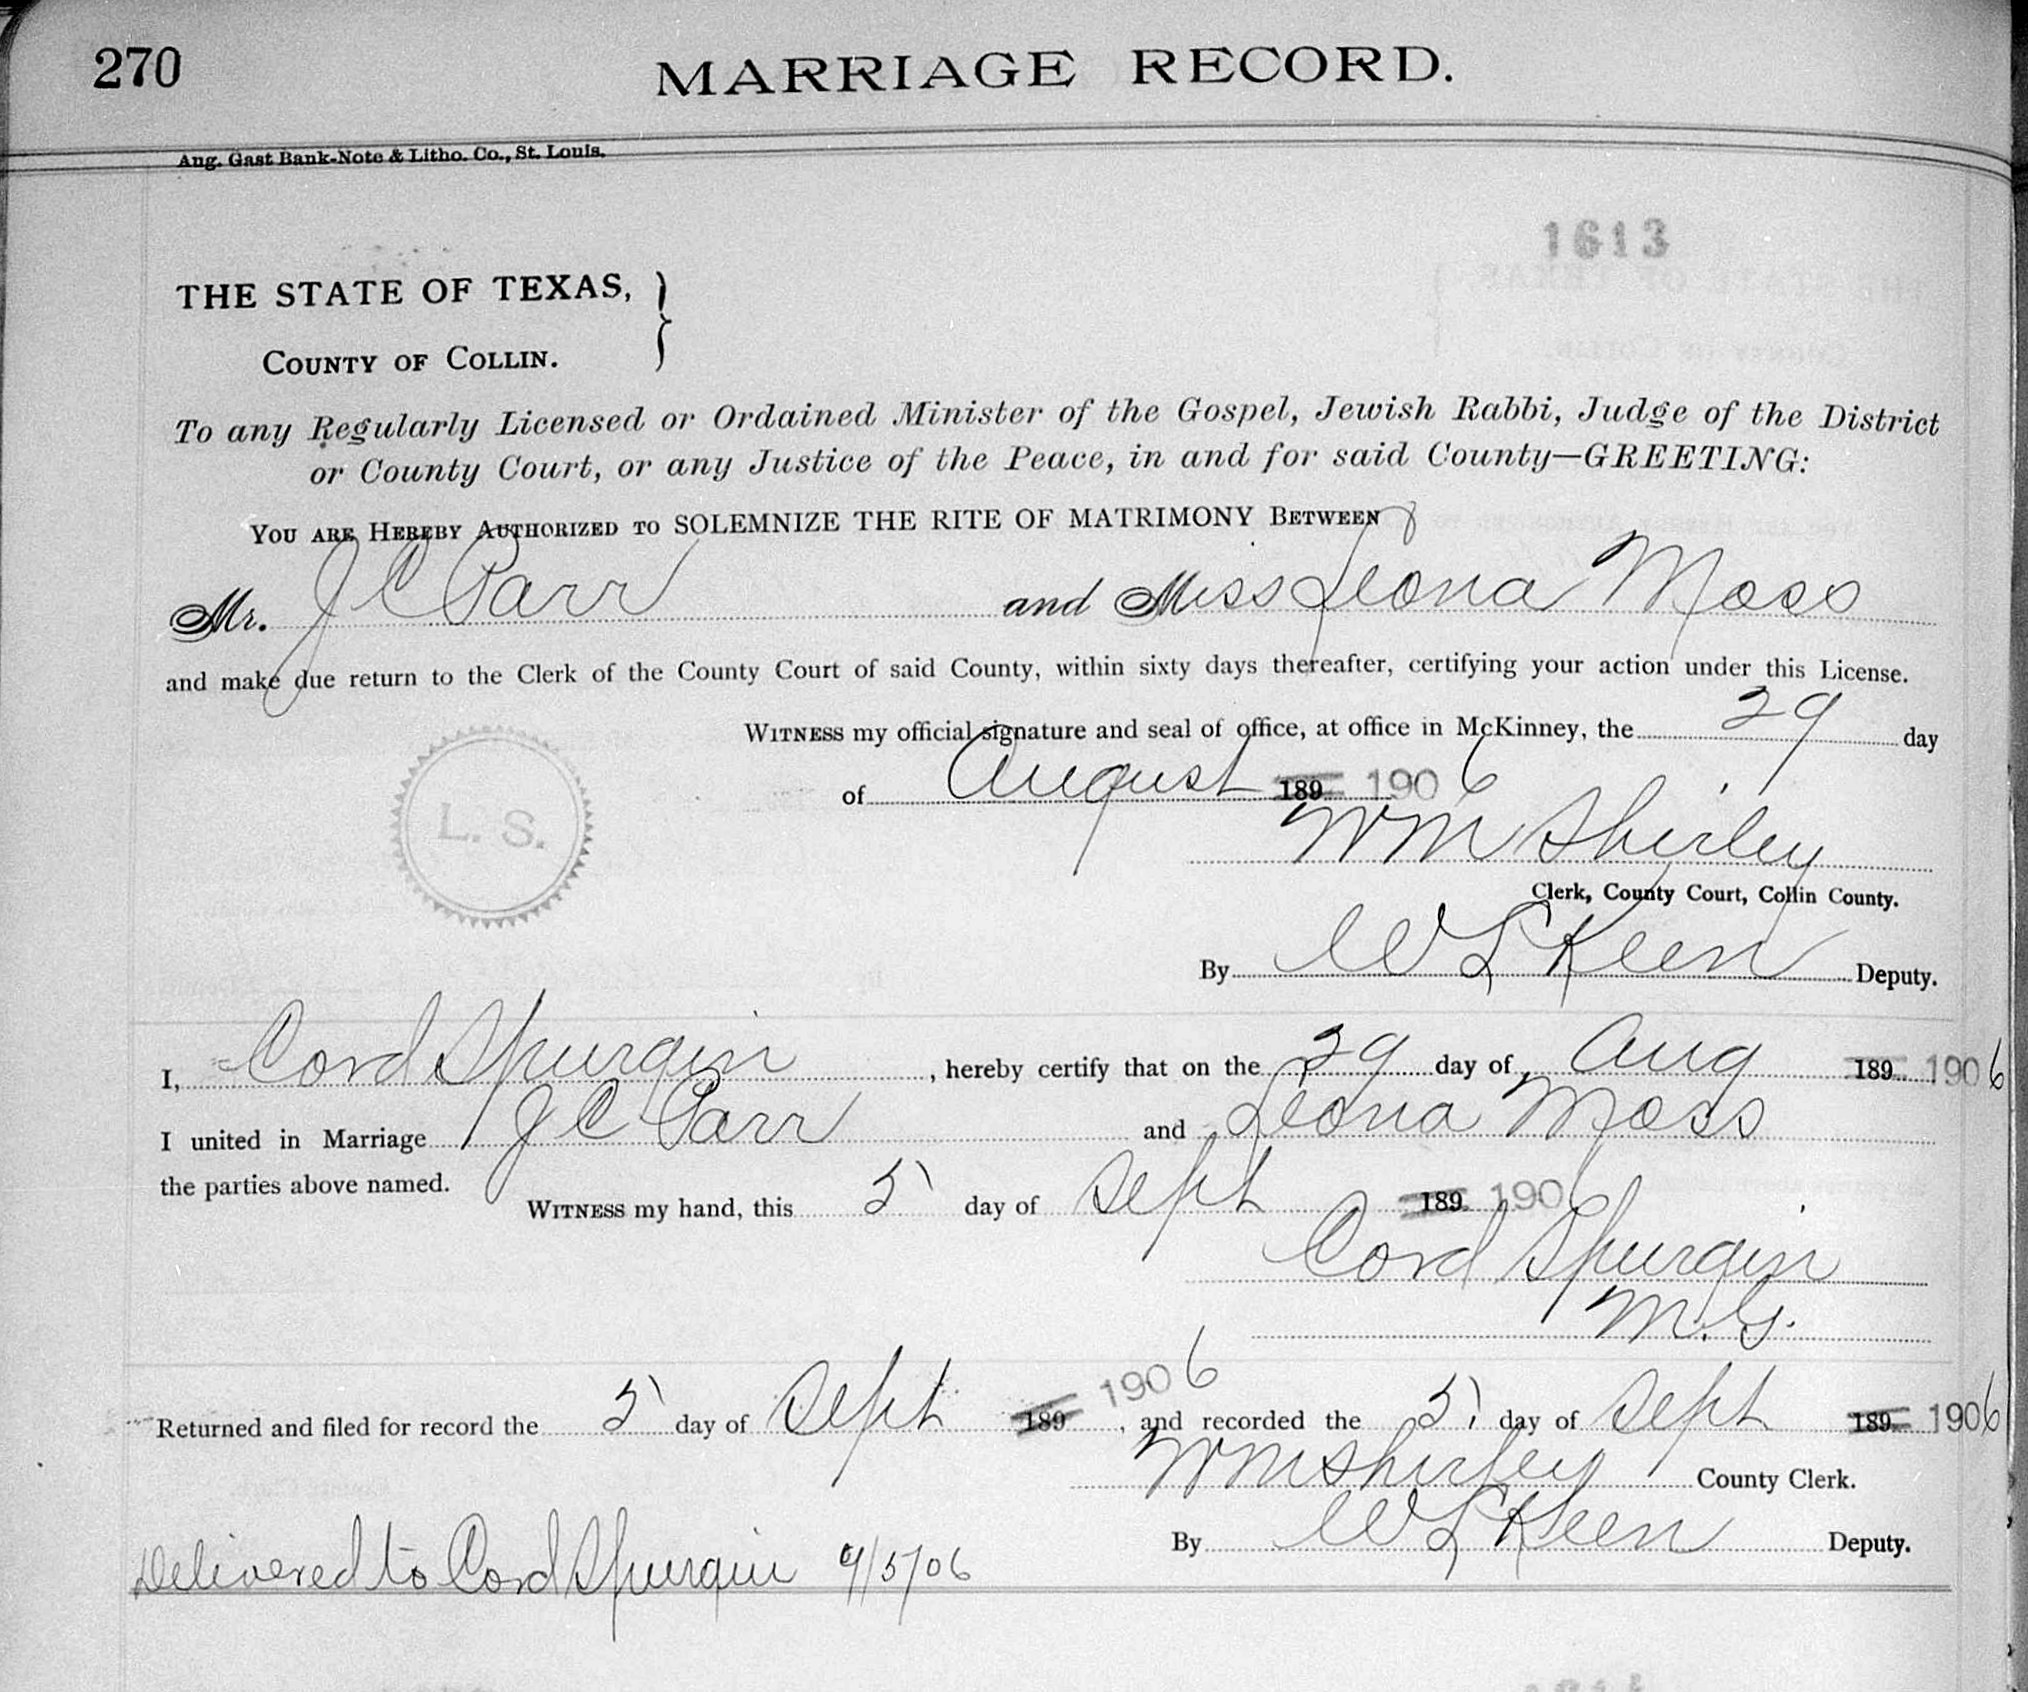 270 MARRIAGE RECORD.
Aug. Gast Bank-Note & Litho. Co., St. Louis.
1613
THE STATE OF TEXAS,
COUNTY OF COLLIN.
To any Regularly Licensed or Ordained Minister of the Gospel, Jewish Rabbi, Judge of the District
or County Court, or any Justice of the Peace, in and for said County—GREETING:
YOU ARE HEREBY AUTHORIZED TO SOLEMNIZE THE RITE OF MATRIMONY BETWEEN
Mr. J C Parr and Miss Leona Moss
and make due return to the Clerk of the County Court of said County, within sixty days thereafter, certifying your action under this License.
WITNESS my official signature and seal of office, at office in McKinney, the 29 day
of August 189 1906
L. S.
Wm Shirley
Clerk, County Court, Collin County.
By W L Keen Deputy.
I, Cord Spurgin, hereby certify that on the 29 day of Aug 189 1906
I united in Marriage J C Parr and Leona Moss
the parties above named.
WITNESS my hand, this 5 day of Sept 189 1906
Cord Spurgin
M.G.
Returned and filed for record the 5 day of Sept 189 1906, and recorded the 5 day of Sept 189 1906
Wm Shirley County Clerk.
By W L Keen Deputy.
Delivered to Cord Spurgin 9/5/06